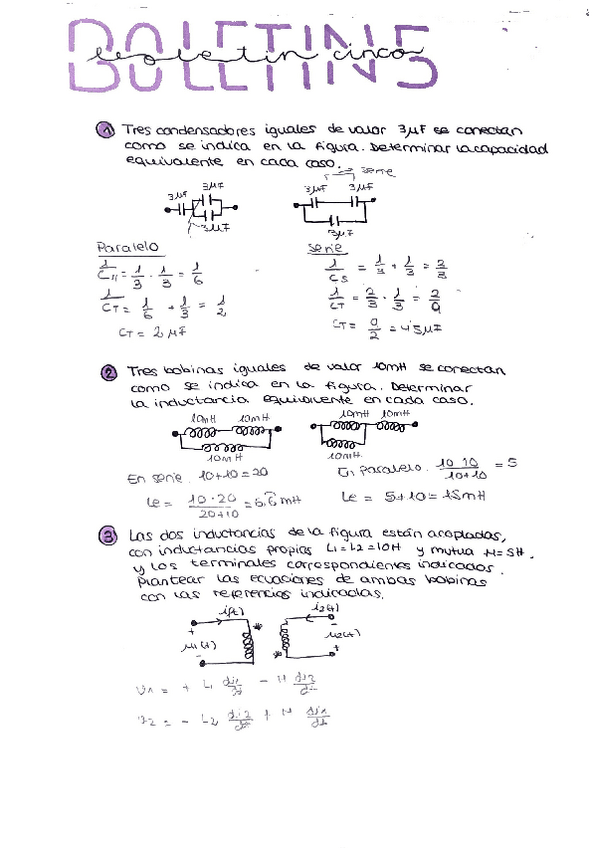 BOLETIN 5
boletin cinco
1 Tres condensadores iguales de valor 3μF se conectan
como se indica en la figura. Determinar la capacidad
equivalente en cada caso.
serie
3μF 3μF 3μF
3μF 3μF 3μF
Paralelo
1/C11 = 1/3 · 1/3 = 1/6
1/CT = 1/6 + 1/3 = 1/2
CT = 2μF
Serie
1/CS = 1/3 + 1/3 = 2/3
1/CT = 2/3 · 1/3 = 2/9
CT = 9/2 = 4'5μF
2 Tres bobinas iguales de valor 10mH se conectan
como se indica en la figura. Determinar
la inductancia equivalente en cada caso.
10mH 10mH 10mH
10mH 10mH 10mH
En serie. 10+10=20
Le = 10·20/20+10 = 6,6mH
En paralelo. 10·10/10+10 = 5
Le = 5+10=15mH
3 Las dos inductancias de la figura están acopladas,
con inductancias propias L1=L2=10H y mutua M=5H.
y los terminales correspondientes indicados.
Plantear las ecuaciones de ambas bobinas
con las referencias indicadas.
i(t) i2(t)
+ μ1(t) - * * - μ2(t) +
V1 = + L1 di1/dt - M di2/dt
V2 = - L2 di2/dt + M di1/dt